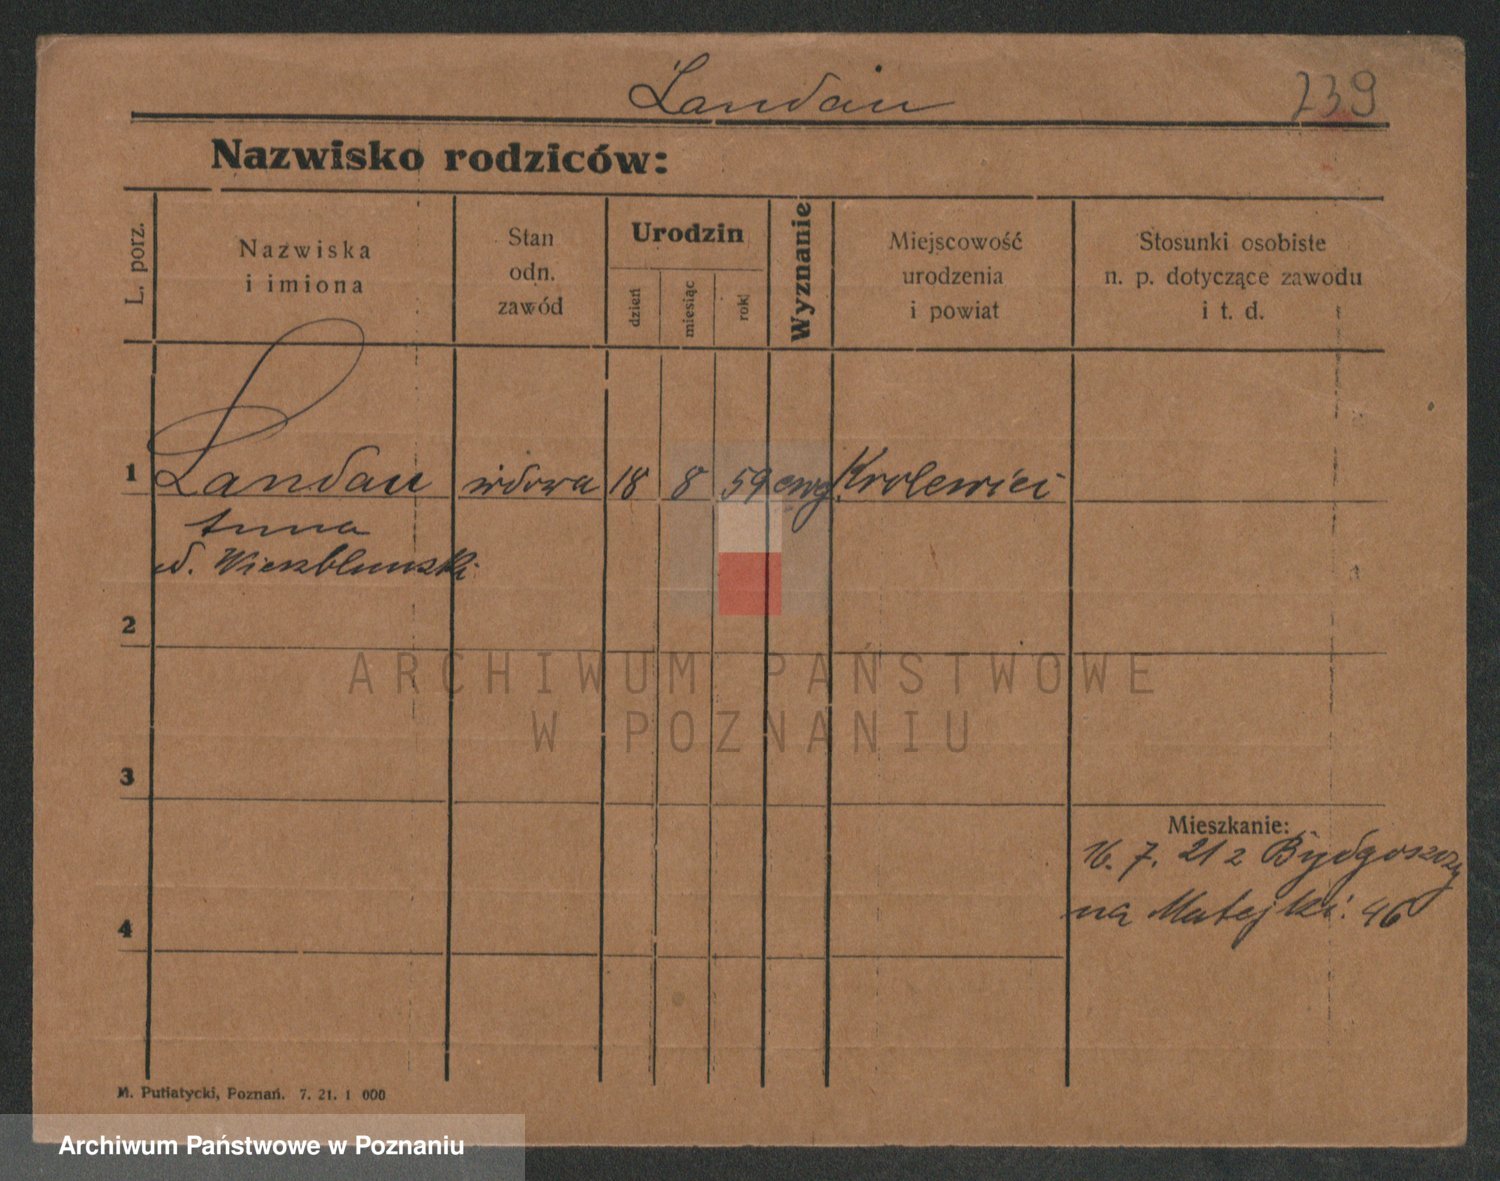 Landau
239
Nazwisko rodziców:
L. porz.
Nazwiska
i imiona
Stan
odn.
zawód
Urodzin
dzień
miesiąc
rok
Wyznanie
Miejscowość
urodzenia
i powiat
Stosunki osobiste
n. p. dotyczące zawodu
i t. d.
1
Landau
wdowa
18
8
59
ewg
Krolewici
Anna
d. Wieszblunski
2
3
Mieszkanie:
16. 7. 21 z Bydgoszczy
na Matejki 46
4
M. Putiatycki, Poznań. 7. 21. 1 000
ARCHIWUM PAŃSTWOWE
W POZNANIU
Archiwum Państwowe w Poznaniu